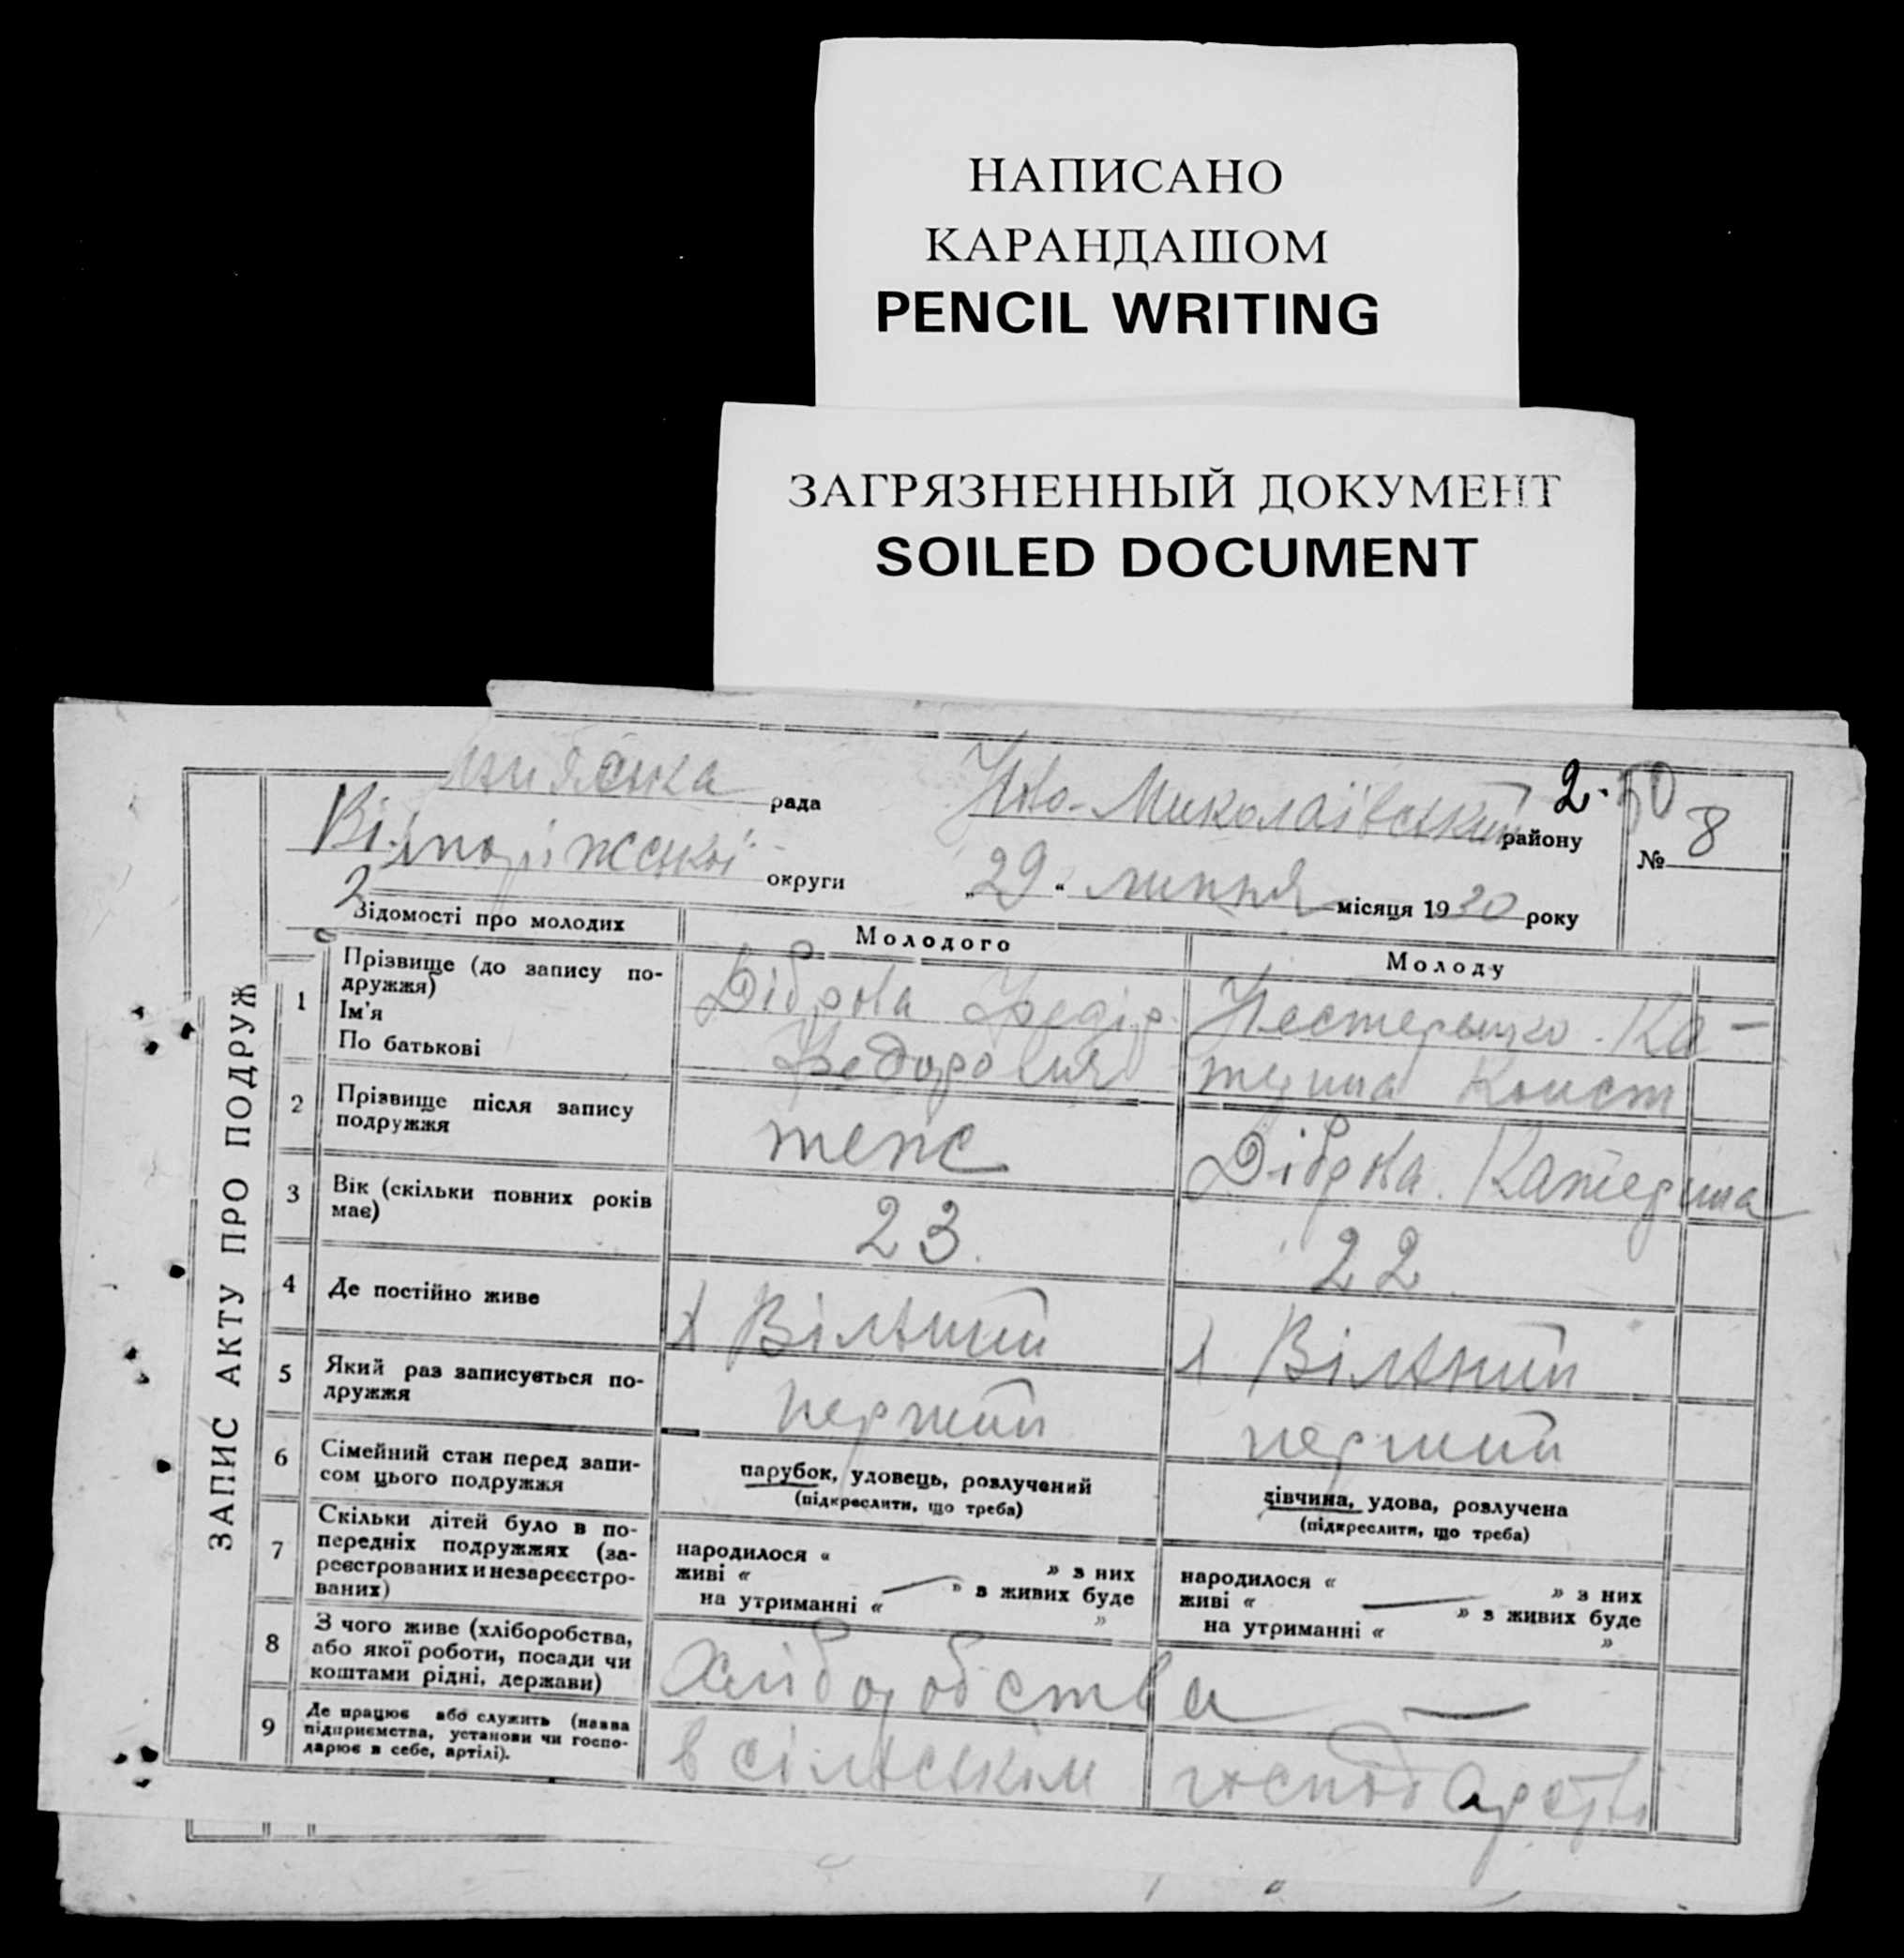 НАПИСАНО
КАРАНДАШОМ
PENCIL WRITING
ЗАГРЯЗНЕННЫЙ ДОКУМЕНТ
SOILED DOCUMENT
рада Ново-Миколаївський району 2·50
округи „29“ липня місяця 1930 року № 8
ЗАПИС АКТУ ПРО ПОДРУЖ
Зідомості про молодих Молодого Молоду
1 Прізвище (до запису по-
дружжя)
Ім'я
По батькові
Діброва Федір
Федорович
Нестеренко Ка-
терина Конст
2 Прізвище після запису
подружжя
теж Діброва Катерина
3 Вік (скільки повних років
має)
23 22
4 Де постійно живе
х Вільний х Вільний
5 Який раз записується по-
дружжя
перший перший
6 Сімейний стан перед запи-
сом цього подружжя
парубок, удовець, розлучений
(підкреслити, що треба)
дівчина, удова, розлучена
(підкреслити, що треба)
7 Скільки дітей було в по-
передніх подружжях (за-
реєстрованих и незареєстро-
ваних)
народилося « » з них
живі « — » з живих буде
на утриманні « »
народилося « » з них
живі « — » з живих буде
на утриманні « »
8 З чого живе (хліборобства,
або якої роботи, посади чи
коштами рідні, держави)
хліборобства —
9 Де працює або служить (назва
підприємства, установи чи госпо-
дарює в себе, артілі).
в сільськім господарстві